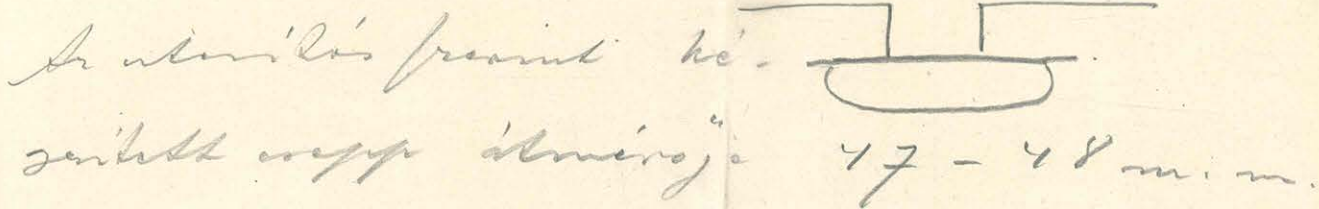 Az utasítás szerint ké-
szített csepp átmérője 47 - 48 m. m.